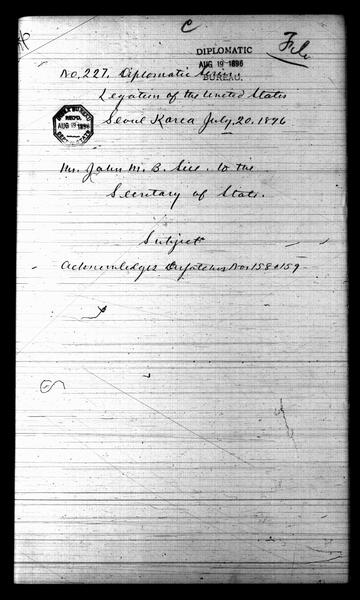 C
DIPLOMATIC
AUG 19 1896
BUREAU
File
No. 227. Diplomatic Series
Legation of the United States
Seoul Korea July 20, 1896
RECVD.
AUG 19 1896
Mr. John M. B. Sill. to the
Secretary of State.
Subject
Acknowledges Despatches Nos 158 & 159